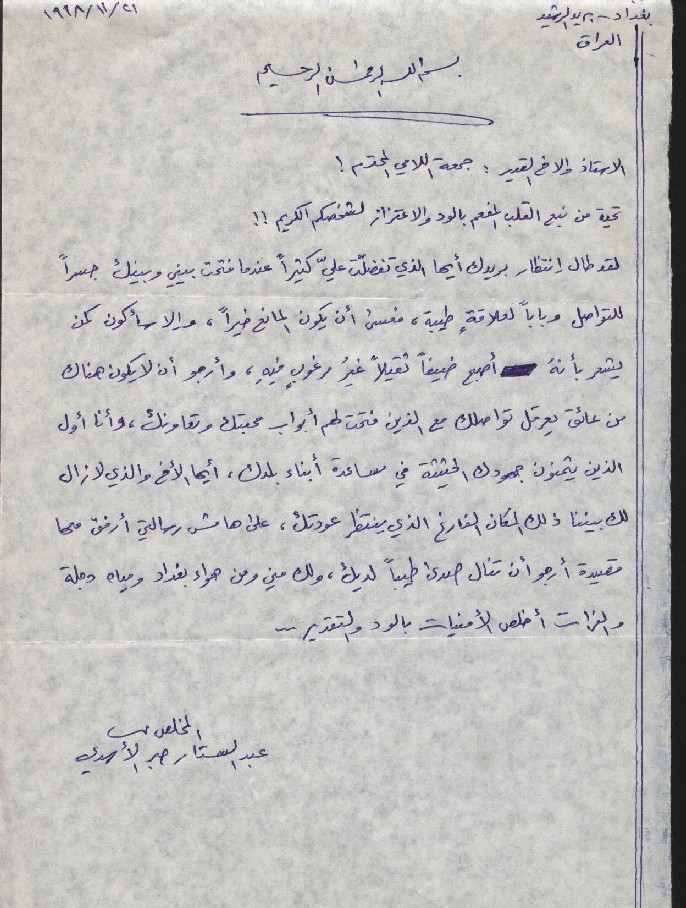 بغداد - بريد الرشيد
العراق
١٩٩٨/١١/٢١
بسم الله الرحمن الرحيم
الاستاذ والاخ القدير : جمعة اللامي المحترم !
تحية من نبع القلب المفعم بالود والاعتزاز لشخصكم الكريم !!
لقد طال إنتظار بريدك أيها الذي تفضلّت عليّ كثيراً عندما فتحت بيني وبينك جسراً
للتواصل وباباً لعلاقةٍ طيبة ، فعسى أن يكون المانع خيراً ، وإلا سأكون كمن
يشعر بأنهُ أصبح ضيفاً ثقيلاً غيرُ مرغوبٍ فيهِ ، وأرجو أن لا يكون هناك
من عائق يعرقل تواصلك مع الذين فتحت لهم أبواب محبتك وتعاونك ، وأنا أول
الذين يثمنون جهودك الحثيثة في مساعدة أبناء بلدك ، أيها الأخ والذي لازال
لك بيننا ذلك المكان الفارغ الذي ينتظر عودتك ، على هامش رسالتي أرفق لكم
قصيدة أرجو أن تنال صدىً طيباً لديك ، ولك مني ومن هواء بغداد ومياه دجلة
والفرات أخلص الأمنيات بالود والتقدير
المخلص
عبد الستار جبر الأسدي